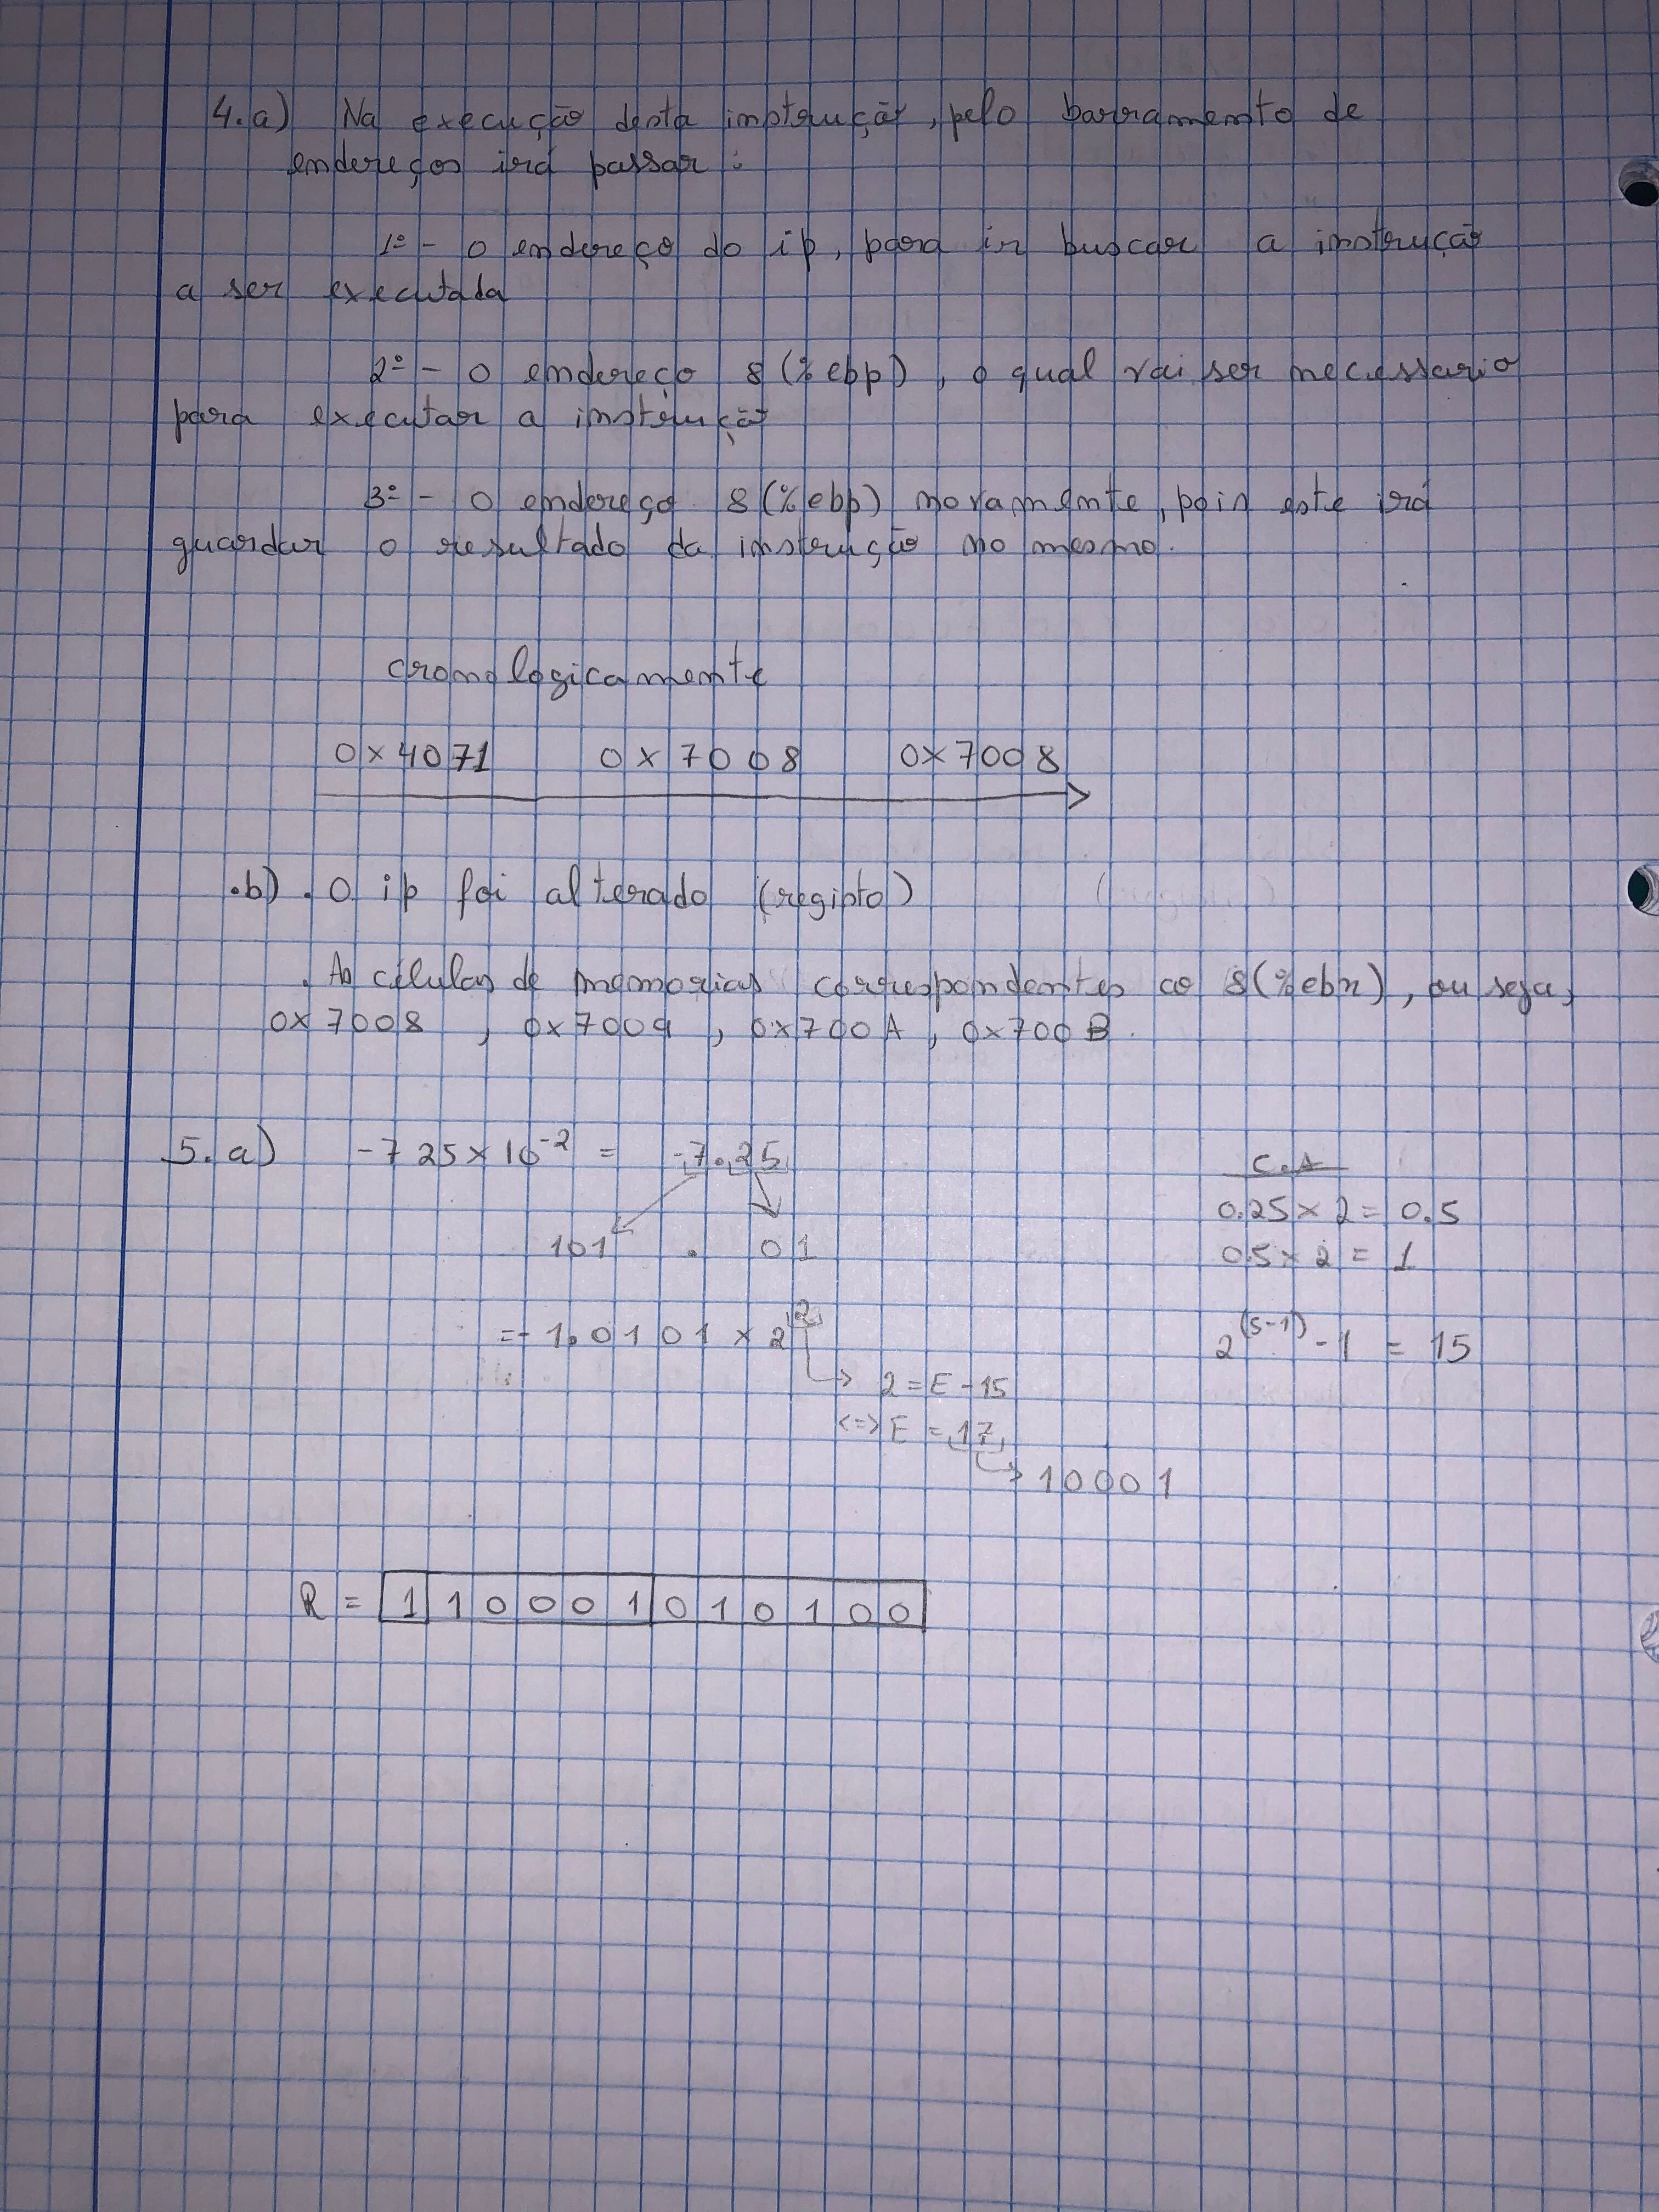 4.a) Na execução desta instrução, pelo barramento de
endereços irá passar :
1º - O endereço do ip, para ir buscar a instrução
a ser executada
2º - O endereço 8(%ebp), o qual vai ser necessario
para executar a instrução
3º - O endereço 8(%ebp) novamente, pois este irá
guardar o resultado da instrução no mesmo.
cronologicamente
0x4071 0x7008 0x7008
.b) . O ip foi alterado (registo)
. As células de memorias correspondentes ao 8(%ebx), ou seja,
0x7008 , 0x7009 , 0x700A , 0x700B .
5. a) -725x10^-2 = -7.25
C.A
0.25 x 2 = 0.5
101 . 01
0.5 x 2 = 1
= -1.0101 x 2^2
2^(5-1) - 1 = 15
→ 2 = E - 15
<=> E = 17
→ 10001
R = 1 10001 010100